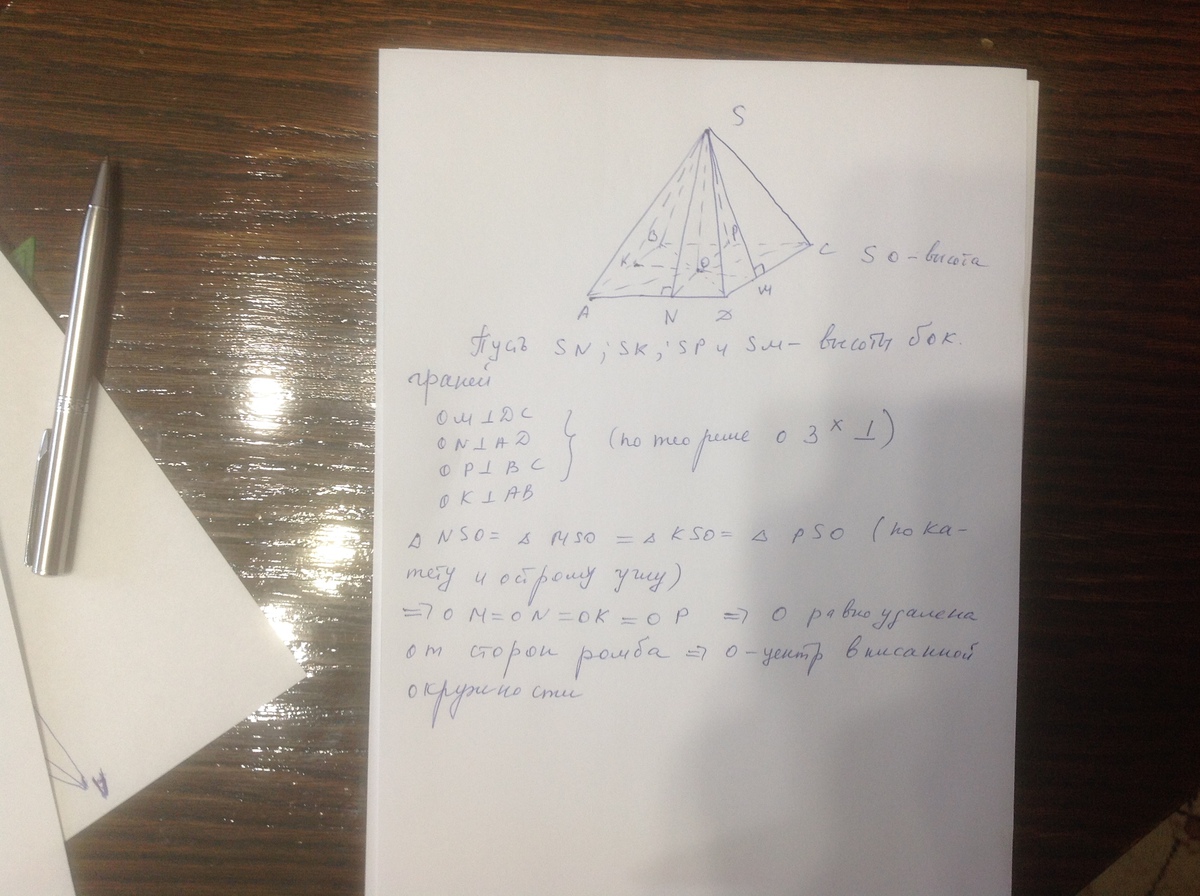 S
B
P
K
O
C
SO - высота
M
A
N
D
Пусть SN; SK; SP и SM - высоты бок.
граней
OM ⊥ DC
ON ⊥ AD
OP ⊥ BC
OK ⊥ AB
(по теореме о 3ˣ ⊥)
Δ NSO = Δ MSO = Δ KSO = Δ PSO (по ка-
тету и острому углу)
⇒ OM = ON = OK = OP ⇒ O равноудалена
от сторон ромба ⇒ O - центр вписанной
окружности
A